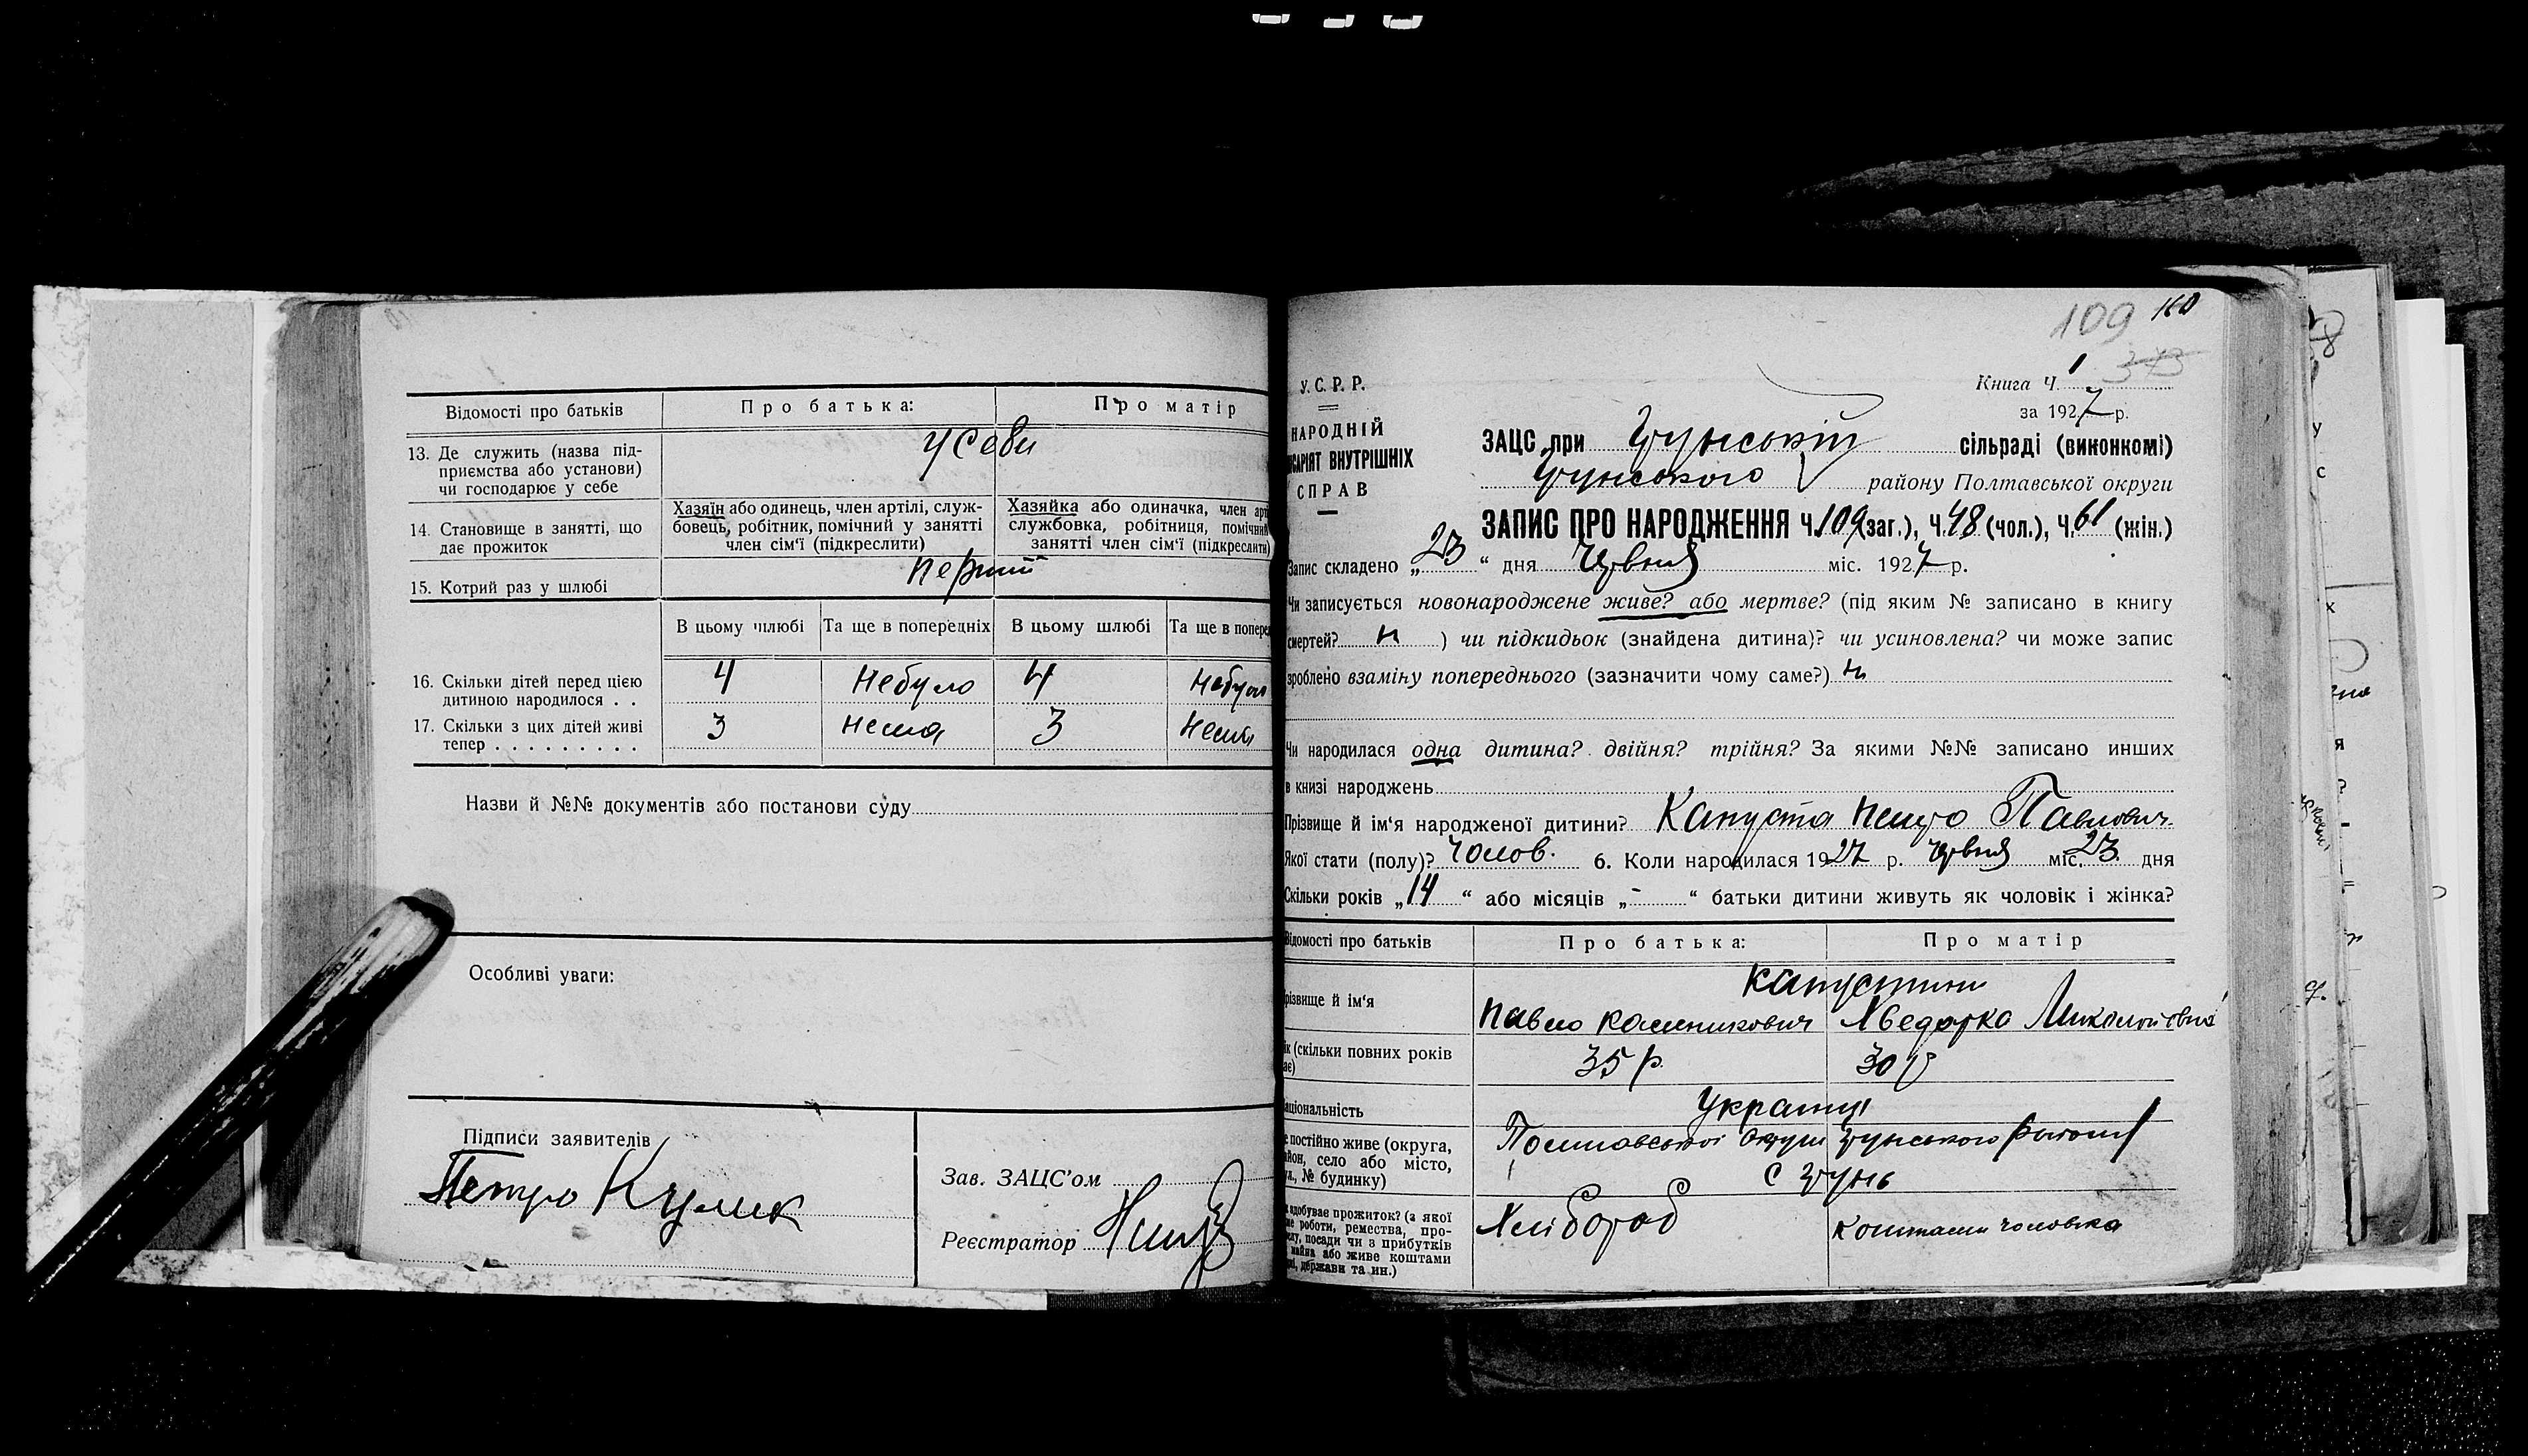 Відомості про батьків Про батька: Про матір
13. Де служить (назва під-
приємства або установи)
чи господарює у себе
у себи
14. Становище в занятті, що
дає прожиток
Хазяїн або одинець, член артілі, служ-
бовець, робітник, помічний у занятті
член сім'ї (підкреслити)
Хазяйка або одиначка, член арт
службовка, робітниця, помічний
занятті член сім'ї (підкреслити)
15. Котрий раз у шлюбі
перший
В цьому шлюбі Та ще в попередніх В цьому шлюбі Та ще в поперед
16. Скільки дітей перед цією
дитиною народилося . .
4 Небуло 4 Небуло
17. Скільки з цих дітей живі
тепер . . . . . . . . .
3 Нема 3 Нема
Назви й №№ документів або постанови суду
Особливі уваги:
Підписи заявителів
Петро Кулик
Зав. ЗАЦС'ом
Реєстратор
109 160
373
У. С. Р. Р.
НАРОДНІЙ
САРІЯТ ВНУТРІШНІХ
СПРАВ
Книга Ч. 1
за 1927 р.
ЗАЦС при сільраді (виконкомі)
району Полтавської округи
ЗАПИС ПРО НАРОДЖЕННЯ Ч. 109 (заг.), Ч. 48 (чол.), Ч. 61 (жін.)
Запис складено „23“ дня Червня міс. 1927 р.
Чи записується новонароджене живе? або мертве? (під яким № записано в книгу
смертей? н ) чи підкидьок (знайдена дитина)? чи усиновлена? чи може запис
зроблено взаміну попереднього (зазначити чому саме?) н
Чи народилася одна дитина? двійня? трійня? За якими №№ записано инших
в книзі народжень
Прізвище й ім'я народженої дитини? Капуста Петро Павлович
Якої стати (полу)? Чолов. 6. Коли народилася 1927 р. Червня міс. 23 дня
Скільки років „14“ або місяців „-“ батьки дитини живуть як чоловік і жінка?
Відомості про батьків Про батька: Про матір
різвище й ім'я
Капустини
Павло Калиникович Хведорка Миколаївна
ік (скільки повних років
ає)
35 р. 30 р
аціональність
Українці
е постійно живе (округа,
йон, село або місто,
ул., № будинку)
Полтавської Округи району
с
к здобуває прожиток? (з якої
ме роботи, ремества, про-
слу, посади чи з прибутків
майна або живе коштами
рми, держави та ин.)
Хлібороб Коштами чоловіка